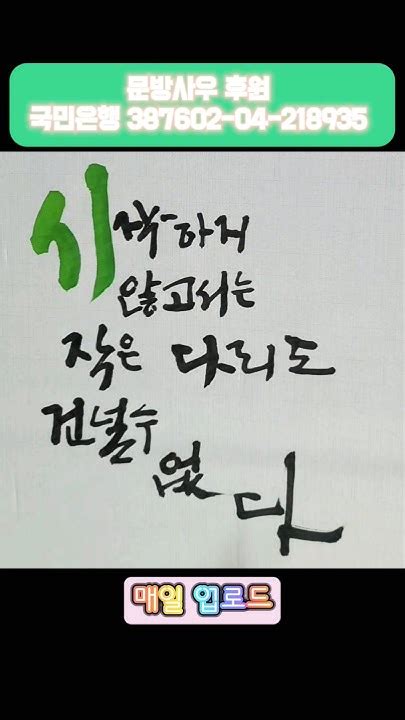 문방사우 후원
국민은행 387602-04-218935
시작하지
않고서는
작은 다리도
건널수
없다
매일 업로드